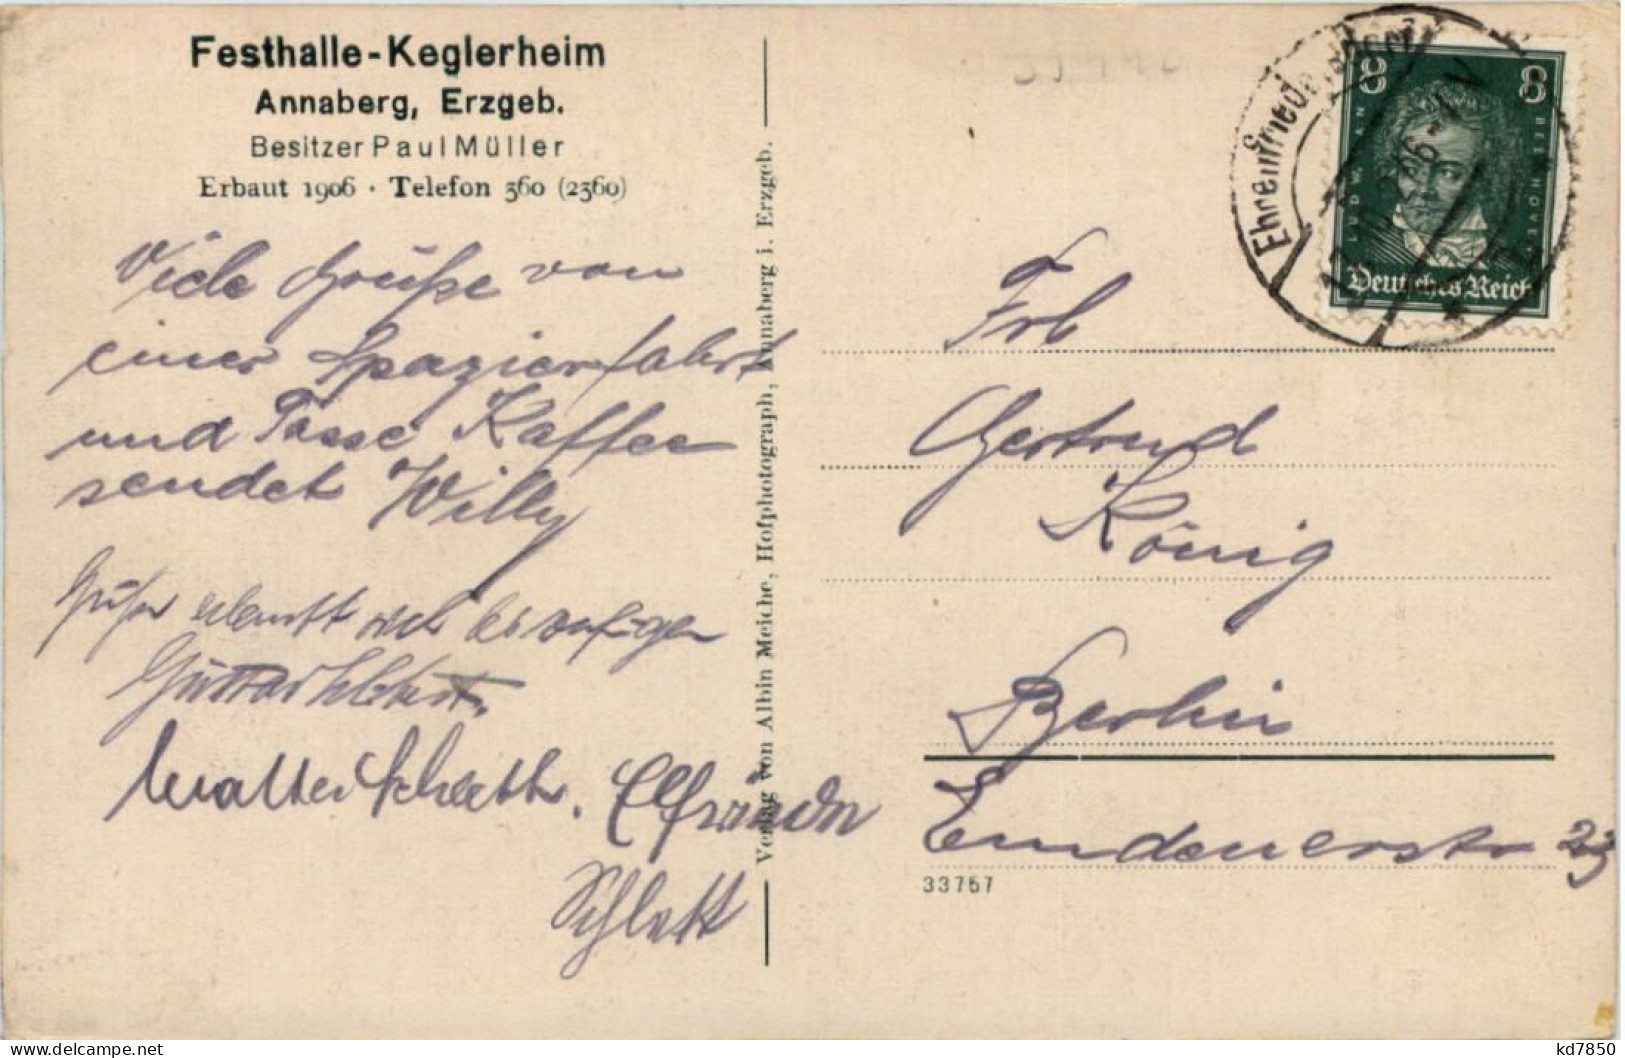 Festhalle-Keglerheim
Annaberg, Erzgeb.
Besitzer Paul Müller
Erbaut 1906 · Telefon 360 (2360)
Viele Grüße von
einer Spazierfahrt
und Tasse Kaffee
sendet Willy
Walter
Schlett
Verlag von Albin Meiche, Hofphotograph, Annaberg i. Erzgeb.
8 8
LUDW. VAN BEETHOVEN
Deutsches Reich
Frl
Gertrud
König
Berlin
Emdenerstr 23
33757
delcampe.net
kd7850